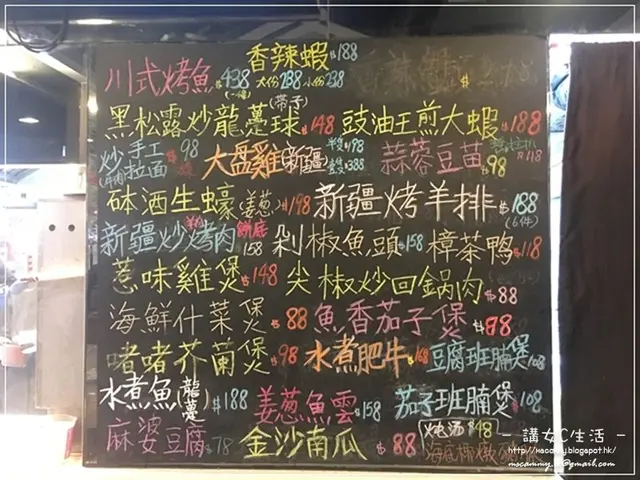 香辣蝦 $188
川式烤魚 $438 (一條) 大份288 小份238
黑松露炒龍躉球(帶子) $148 豉油王煎大蝦 $188
炒手工拉面(牛肉) $98 大盘雞(新疆) 半隻$198 壹隻$388 蒜蓉豆苗 $98
砵酒生蠔(姜葱) $198 新疆烤羊排 $188 (6件)
新疆炒烤肉 餅底 158 剁椒魚頭 $158 樟茶鴨 $118
惹味雞煲 $148 尖椒炒回鍋肉 $88
海鮮什菜煲 $88 魚香茄子煲 $98
啫啫芥蘭煲 $98 水煮肥牛 $168 豆腐班腩煲 $108
水煮魚(龍躉) $188 姜葱魚雲 $158 茄子班腩煲 $108
麻婆豆腐 $78 金沙南瓜 $88 炖汤 $48
海底椰燉
- 講女C生活 -
http://mscammy.blogspot.hk/
mscammy.c@gmail.com